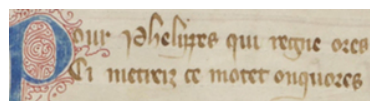 Pour phelippes qui regne ores
Ci metreiz ce motet onquores